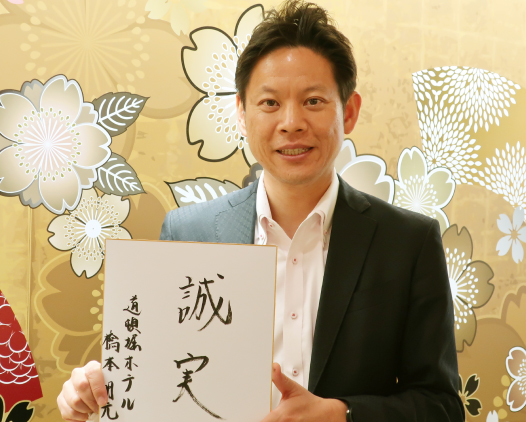 誠実
道頓堀ホテル
橋本明元